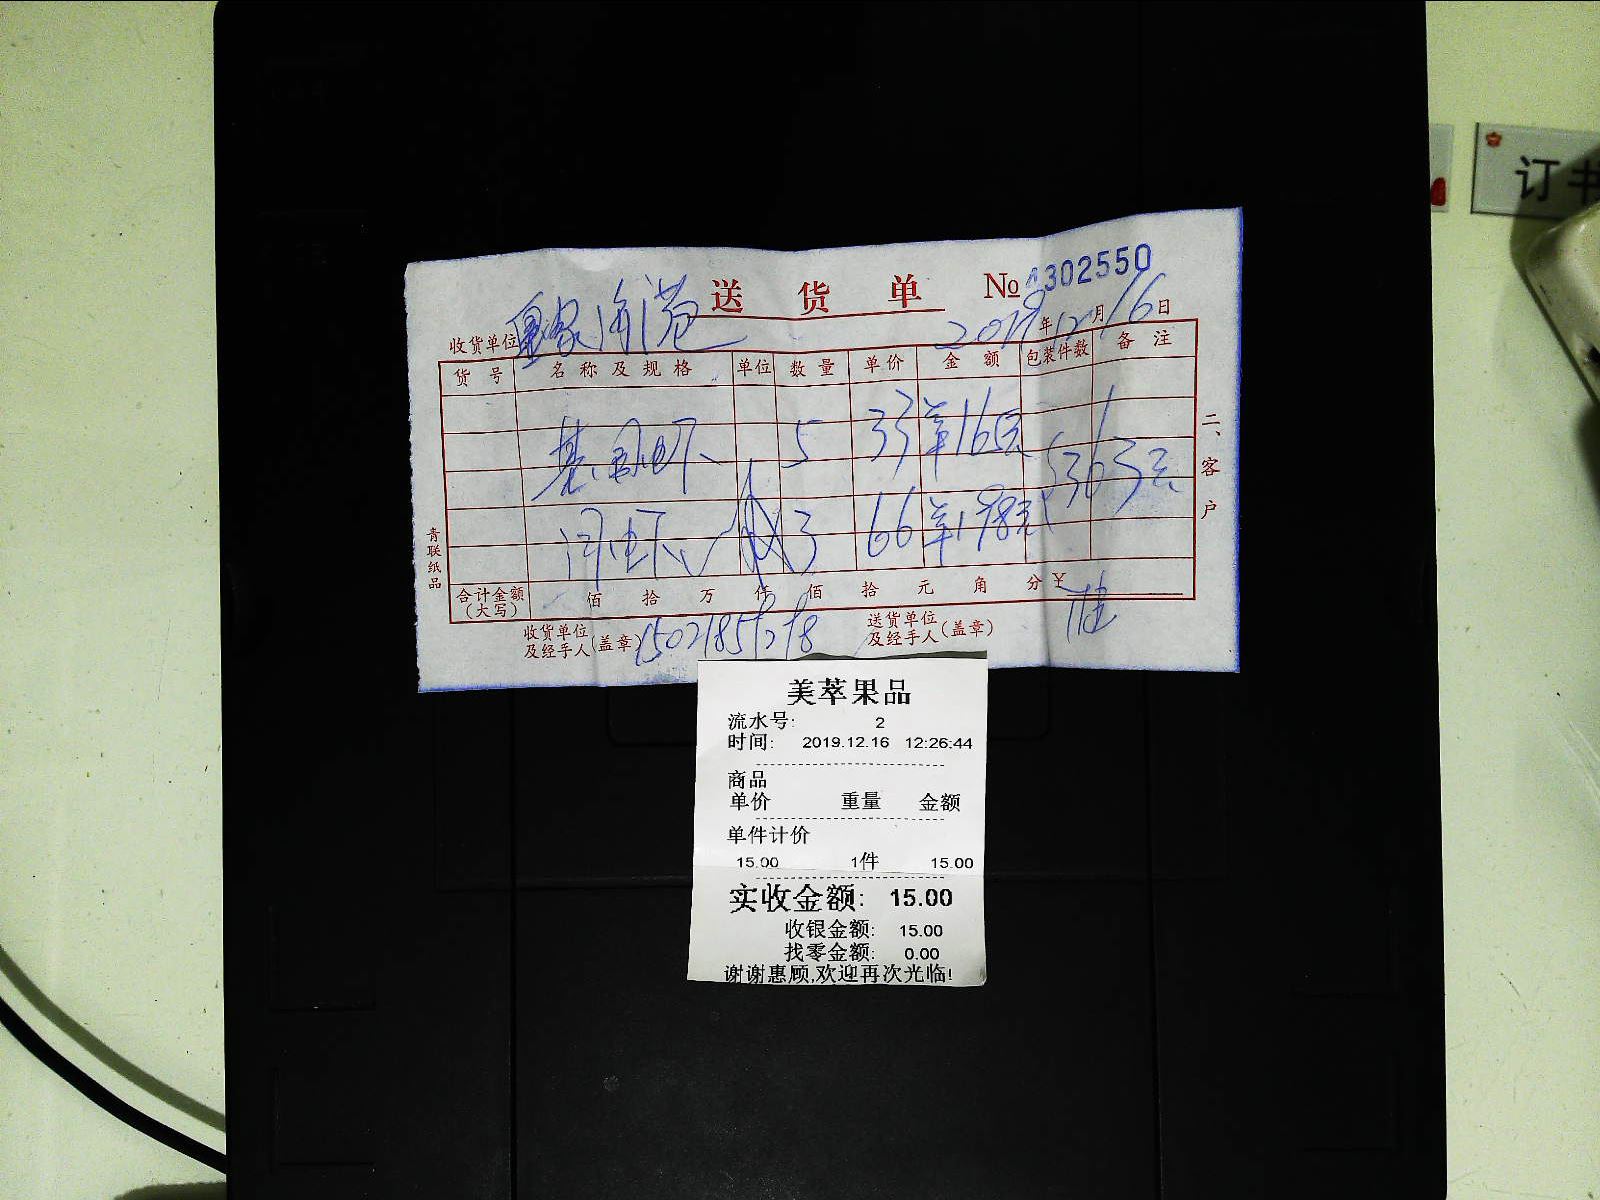 订书
送货单 №4302550
收货单位
2019年12月16日
货号 名称及规格 单位 数量 单价 金额 包装件数 备注
基围虾 5 33 165元
363元
3 66 198元
合计金额(大写) 佰 拾 万 仟 佰 拾 元 角 分 ¥
收货单位及经手人(盖章) 送货单位及经手人(盖章)
二、客户
青联纸品
美萃果品
流水号: 2
时间: 2019.12.16 12:26:44
商品
单价 重量 金额
单件计价
15.00 1件 15.00
实收金额: 15.00
收银金额: 15.00
找零金额: 0.00
谢谢惠顾,欢迎再次光临!